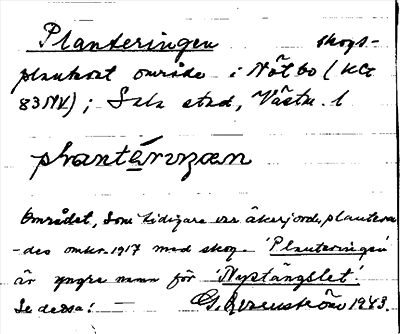 Planteringen skogs-
planterat område i Nötbo (KG
83NV); Sala stad, Västm. l
plantériŋæn
Området, som tidigare var åkerjord, plantera-
-des omkr. 1917 med skog. 'Planteringen'
är yngre namn för 'Nystängslet'.
Se dessa! — G. 1943.